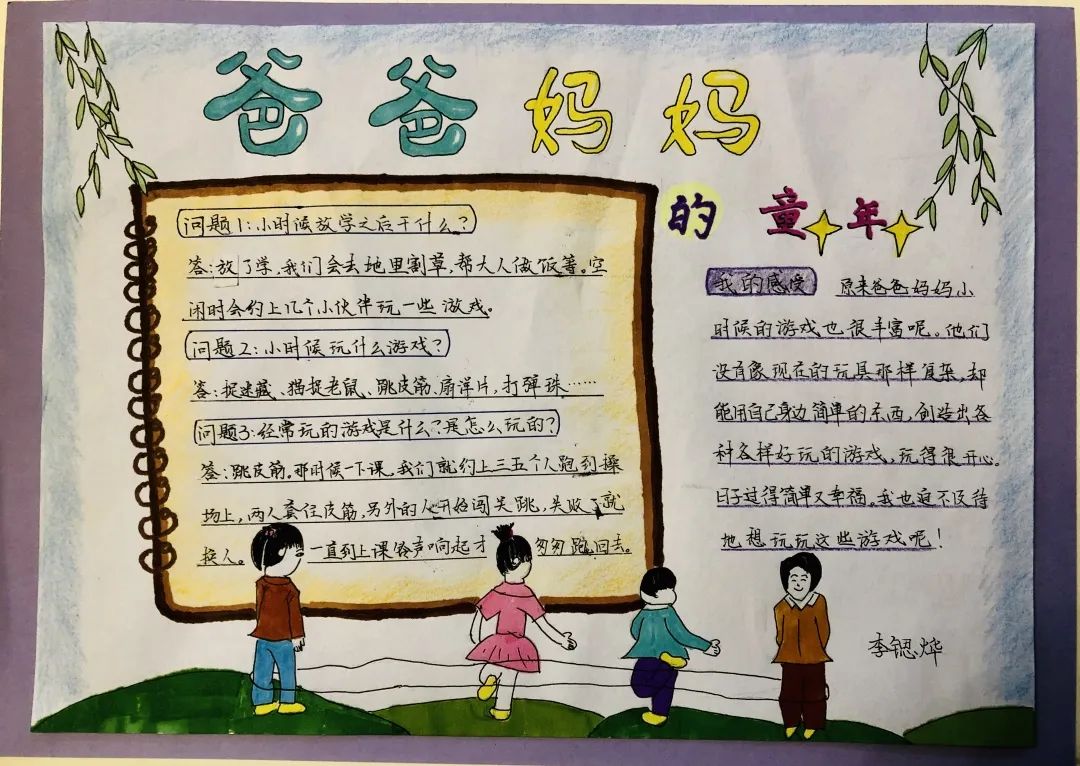 爸爸妈妈
的童年
问题1:小时候放学之后干什么?
答:放了学,我们会去地里割草,帮大人做饭等。空
闲时会约上几个小伙伴玩一些游戏。
问题2:小时候玩什么游戏?
答:捉迷藏、猫捉老鼠、跳皮筋、扇洋片,打弹珠……
问题3:经常玩的游戏是什么?是怎么玩的?
答:跳皮筋。那时候一下课,我们就约上三五个人跑到操
场上,两人套住皮筋,另外的人开始闯关跳,失败了就
换人。一直到上课铃声响起才匆匆跑回去。
我的感受 原来爸爸妈妈小
时候的游戏也很丰富呢。他们
没有像现在的玩具那样复杂,却
能用自己身边简单的东西,创造出各
种各样好玩的游戏,玩得很开心。
日子过得简单又幸福。我也迫不及待
地想玩玩这些游戏呢!
李锶烨